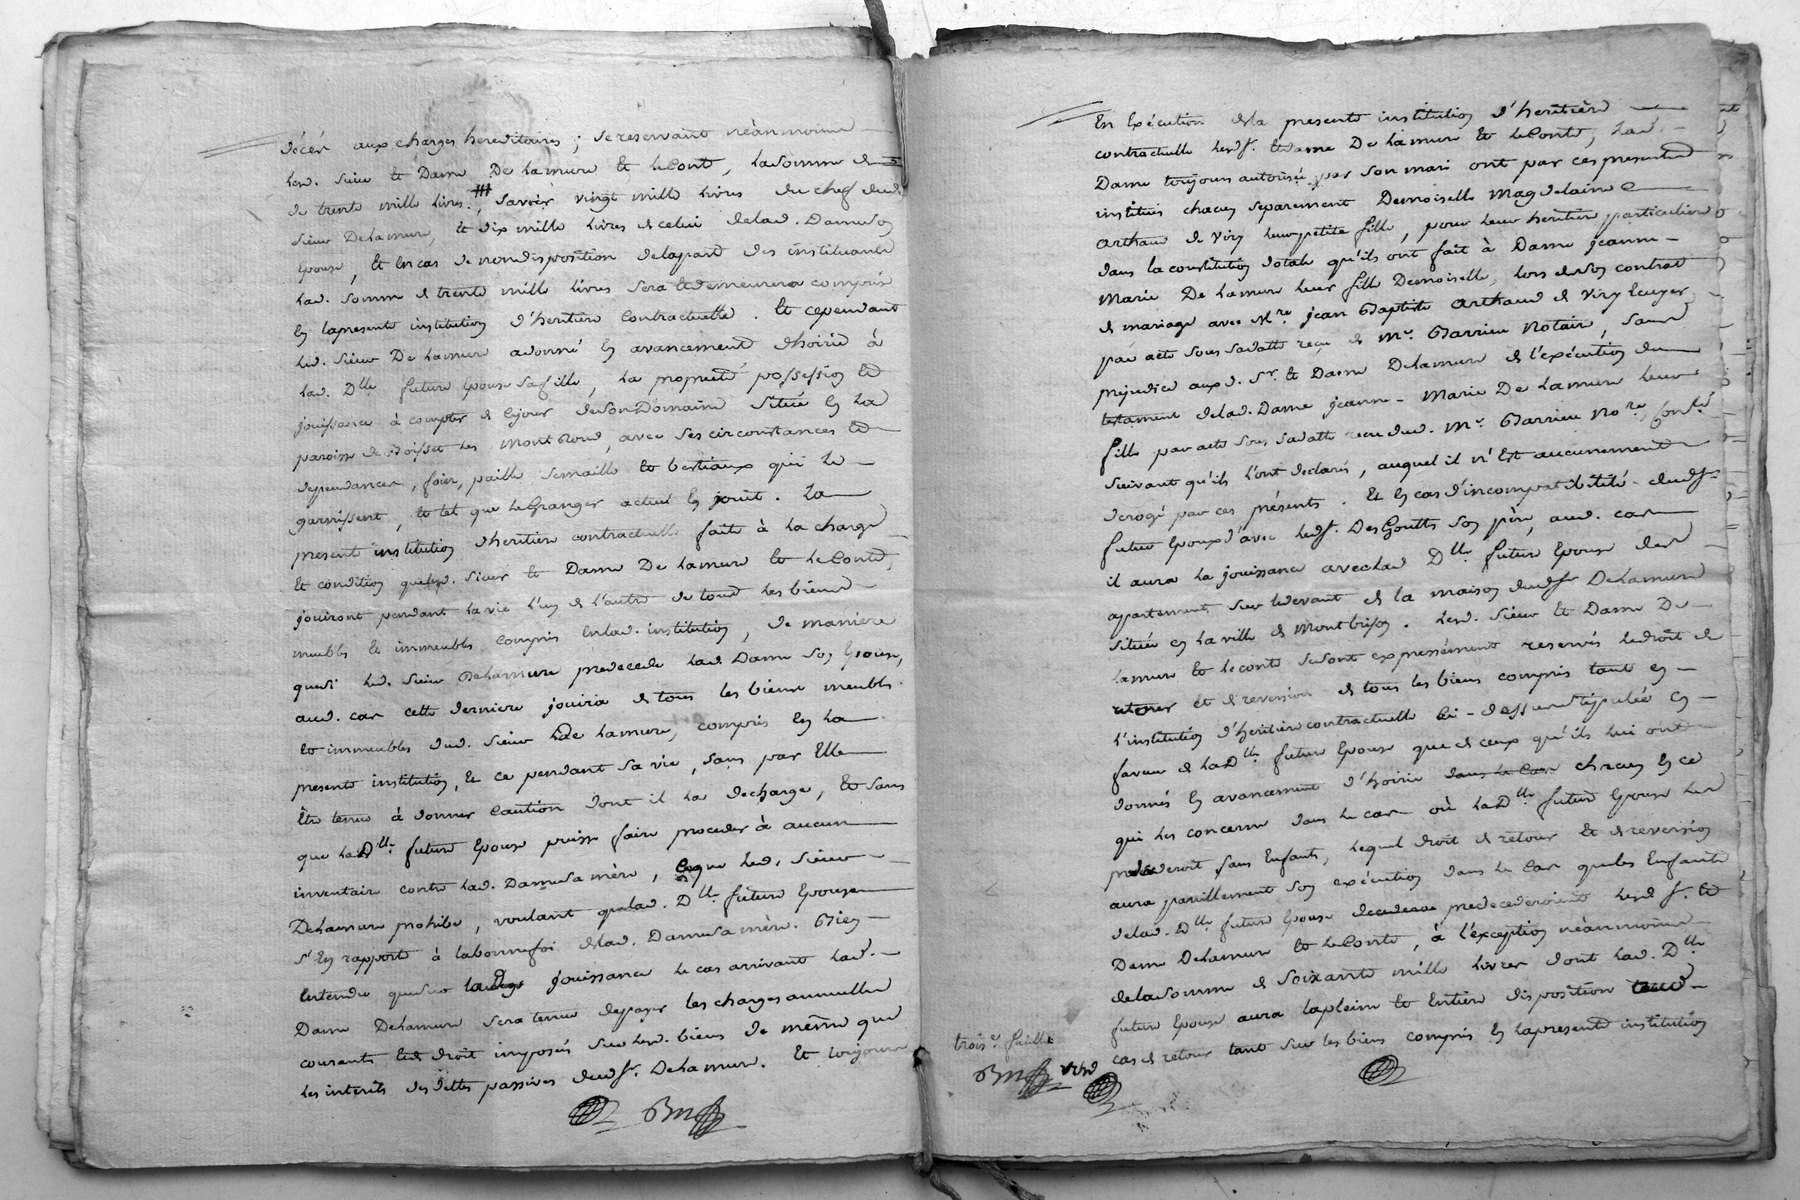 décès aux charges hereditaires ; se reservant néanmoins
lesd. sieur et Dame De Lamure et LeCont, la somme de
de trente mille livres, savoir vingt mille livres du chef dud.
sieur Delamure, et dix mille livres de celui de lad. Dame son
Epouse, Et en cas de nondisposition de la part des instituants
lad. somme de trente mille livres sera et demeurera comprise
En la presente institution d'heritiere Contractuelle. Et cependant
led. sieur De Lamure a donné En avancement d'hoirie à
lad. Dlle future Epouse sa fille, la proprieté possession et
jouissance à compter de ce jour de son Domaine situé En la
paroisse de Boisset Les Montrond, avec ses circonstances et
dependances, foin, paille semaille et bestiaux qui le
garnissent, et tel que le Granger actuel En jouit. La
present institution d'heritiere contractuelle faite à la charge
et condition que lesd. sieur et Dame De Lamure et LeConte,
jouiront pendant la vie l'un de l'autre de tous les biens
meubles et immeubles compris En lad. institution, de maniere
que si led. sieur Delamure predecede lad. Dame son Epouse,
aud. cas cette derniere jouira de tous les biens meubles
et immeubles dud. sieur De Lamure, compris En la
presente institution, Et ce pendant sa vie, sans par Elle
Etre tenue à donner Caution dont il la decharge, et sans
que lad. Dlle future Epouse puisse faire proceder à aucun
inventaire contre lad. Dame sa mère, ce que led. sieur
Delamure prohibe, voulant que lad. Dlle future Epouse
s'En rapporte à la bonne foi de lad. Dame sa mère. Bien
Entendu que jouissance le cas arrivant lad.
Dame Delamure sera tenue de payer les charges annuelles
courants et de droit imposés sur lesd. biens de même que
les interets des dettes passives dud. sr. Delamure. Et toujours
En Exécution de la presente institution d'heritière
contractuelle lesd. sr. et dame De Lamure et LeConte, lad.
Dame toujours autorisée par son mari ont par ces presentes
institués chacun separement Demoiselle Magdelaine
Arthaud de Viry leur petite fille, pour leur heritiere particuliere
dans la constitution dotale qu'ils ont fait à Dame jeanne-
Marie De Lamure leur fille Demoiselle, lors de son contrat
de mariage avec Mre. jean Baptiste Arthaud de Viry Ecuyer
par acte sous sa date reçu de Me. Barrieu Notaire, sans
prejudice auxd. Sr. et Dame Delamure de l'exécution du
testament de lad. Dame jeanne-Marie De Lamure leur
fille par acte sous sa date reçu dud. Me. Barrieu Nore.
suivant qu'ils l'ont declarés, auquel il n'Est aucunement
derogé par ces présents. Et En cas d'incompatibilité dud. sr.
futur Epoux d'avec led. sr. DesGoutts son père, aud. cas
il aura la jouissance avec lad. Dlle future Epouse des
apartements sur le devant de la maison dud. sr. Delamure
située En la ville de Montbrison. Lesd. sieur et Dame De
Lamure et LeConte se sont expressément reservés le droit de
retour et de reversion de tous les biens compris tant en
l'institution d'heritiere contractuelle ci-dessus stipulée En
faveur de lad. Dlle future Epouse que de ceux qu'ils lui ont
donnés En avancement d'hoirie dans le cas chacun En ce
qui les concerne dans le cas où lad. Dlle future Epouse les
predecederoit sans Enfants, lequel droit de retour et de reversion
aura pareillement son exécution dans le cas que les Enfants
de lad. Dlle future Epouse predecederoient lesd. sr. et
Dame Delamure et LeConte, à l'exception néanmoins
de la somme de soixante mille livres dont lad. Dlle
future Epouse aura la pleine et Entiere disposition aud.
cas de retour tant sur les biens compris En la presente institution
trois.e feuille